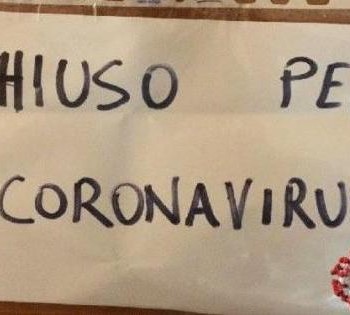 HIUSO PE
CORONAVIRU